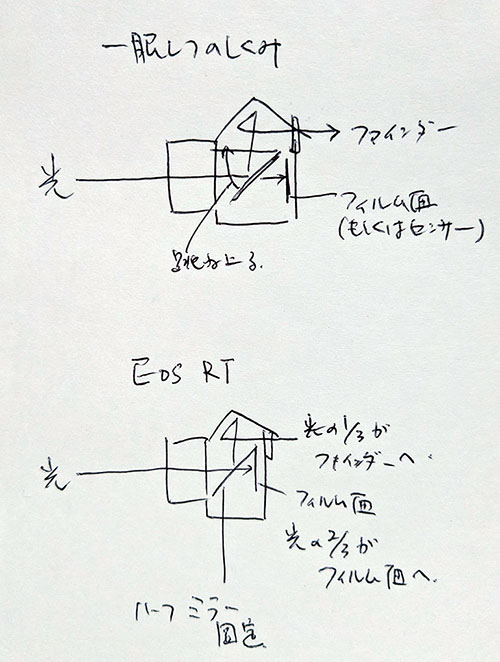 一眼レフのしくみ
光
ファインダー
フィルム面
(もしくはセンサー)
上る.
EOS RT
光
光の1/3が
ファインダーへ.
フィルム面
光の2/3が
フィルム面へ.
ハーフミラー
固定